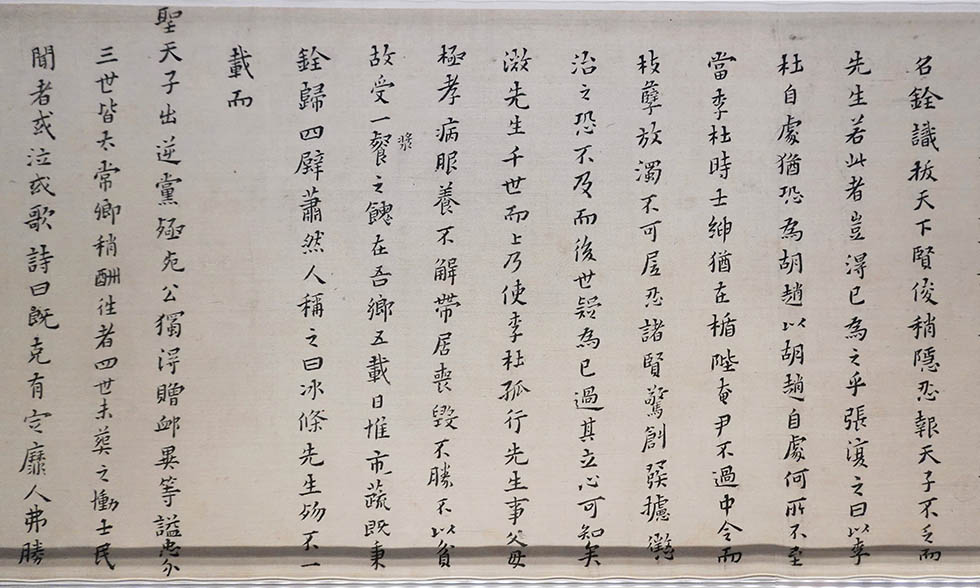 名銓識拔天下賢俊稍隱忍報天子不乏而
先生若此者豈淂已為之乎張溥之曰以李
杜自處猶恐為胡趙以胡趙自處何所不至
當李杜時士紳猶在楯陛奄尹不過中令而
枝孽放濁不可居忍諸賢驚創彊攄懲
治之恐不及而後世疑為已過其立心可知矣
㳽先生千世而上乃使李杜孤行先生事父母
極孝病眼養不解帶居喪毀不勝不以貧
故受一餐之餽在吾鄉五載日惟市蔬既秉
銓歸四壁蕭然人稱之曰冰條先生歿不一
載而
聖天子出逆黨殛死公獨淂贈卹異等謚忠介
三世皆太常卿稍酬徃者四世未葬之慟士民
聞者或泣或歌詩曰既克有定靡人弗勝